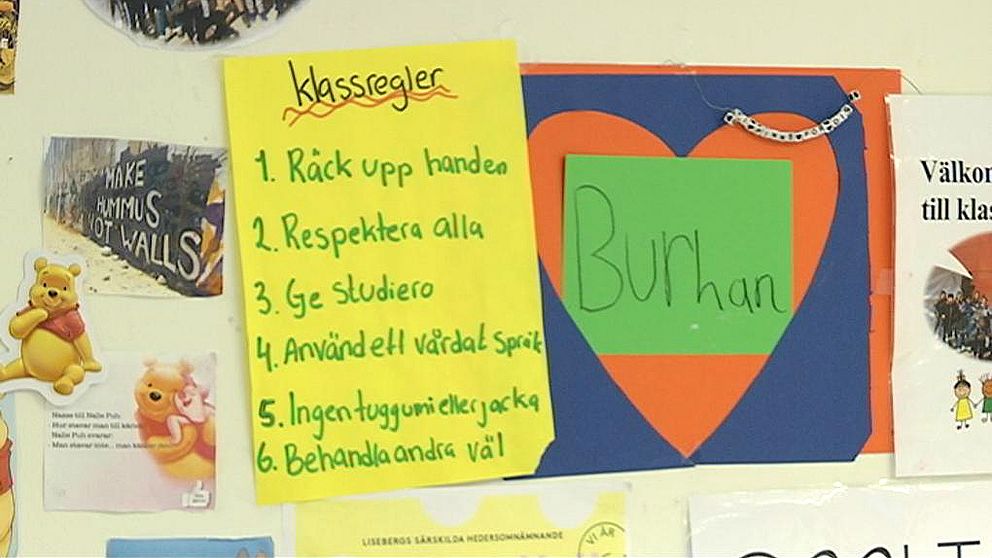 klassregler
1. Räck upp handen
2. Respektera alla
3. Ge studiero
4. Använd ett vårdat språk
5. Ingen tuggumi eller jacka
6. Behandla andra väl
Burhan
MAKE
HUMMUS
NOT WALLS
Nasse till Nalle Puh:
Hur stavar man till kärlek
Nalle Puh svarar:
Man stavar inte... man känner den
Välkom
till klas
LISEBERGS SÄRSKILDA HEDERSOMNÄMNANDE
VI ÄR